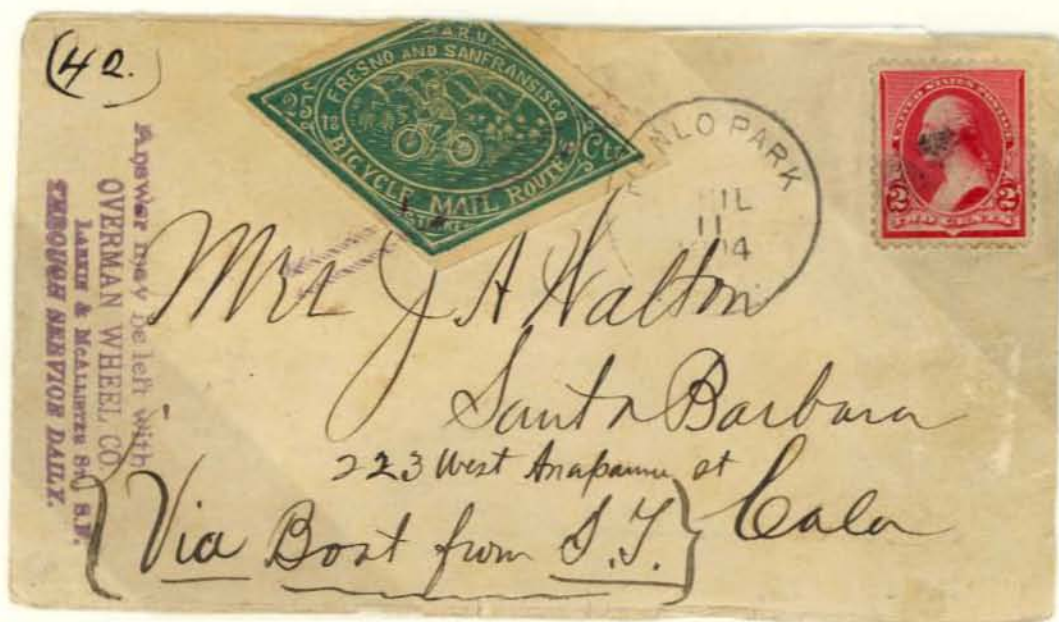 (42.)
A.R.U.
FRESNO AND SANFRANSISCO
25 Cts
BICYCLE MAIL ROUTE
MENLO PARK
11
UNITED STATES POSTAGE
2 2
TWO CENTS
Answer may be left with
OVERMAN WHEEL CO.
LARKIN & McALLISTER STS, S.F.
THROUGH SERVICE DAILY.
Mrs J A Walton
Santa Barbara
223 West Anapamu st
Cala
{Via Boat from S.F.}